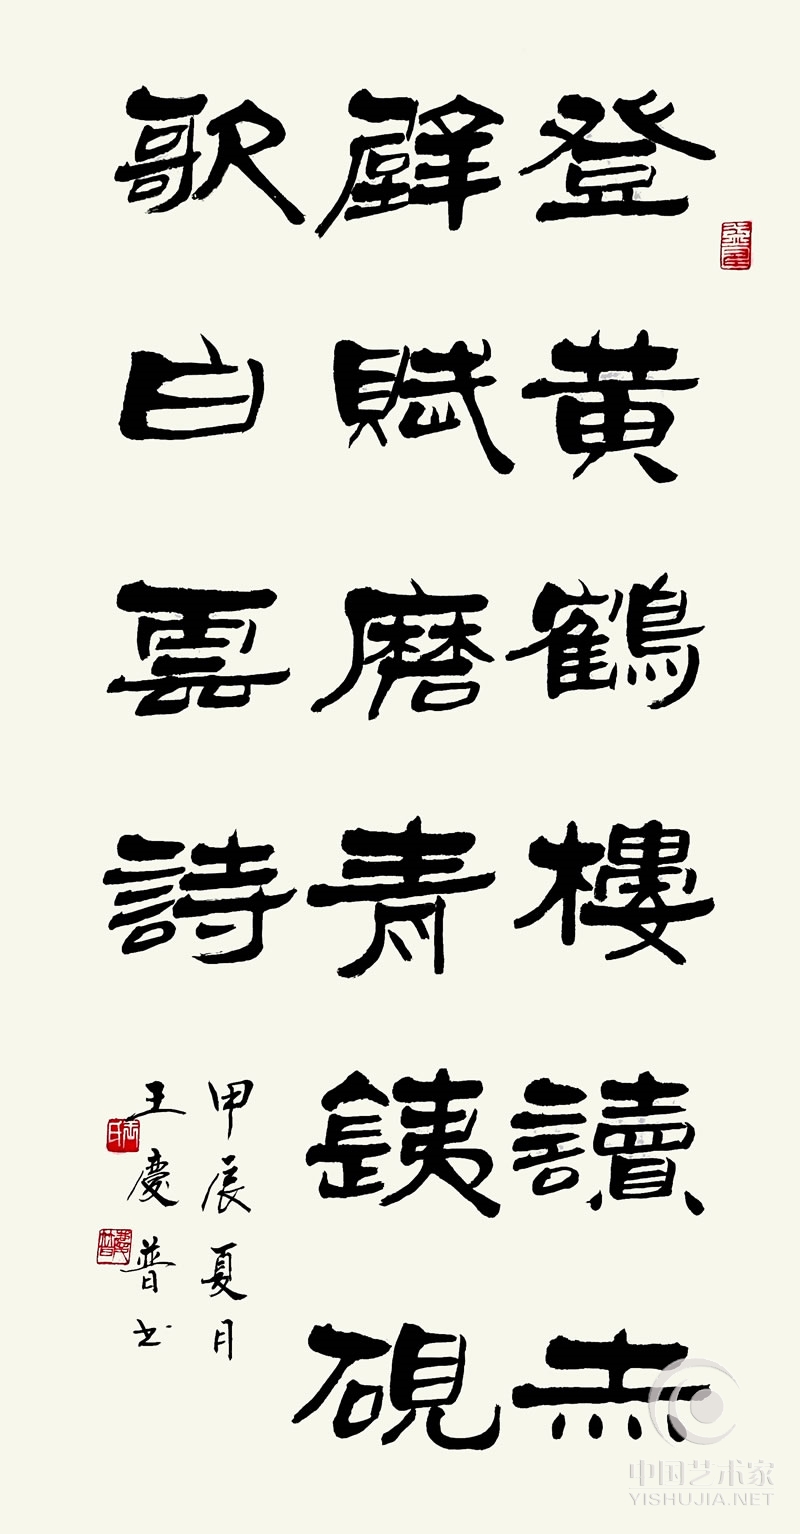 登黄鶴樓讀赤
壁賦磨青銕硯
歌白雲詩
甲辰夏月
王慶普书
中国艺术家
YISHUJIA.NET